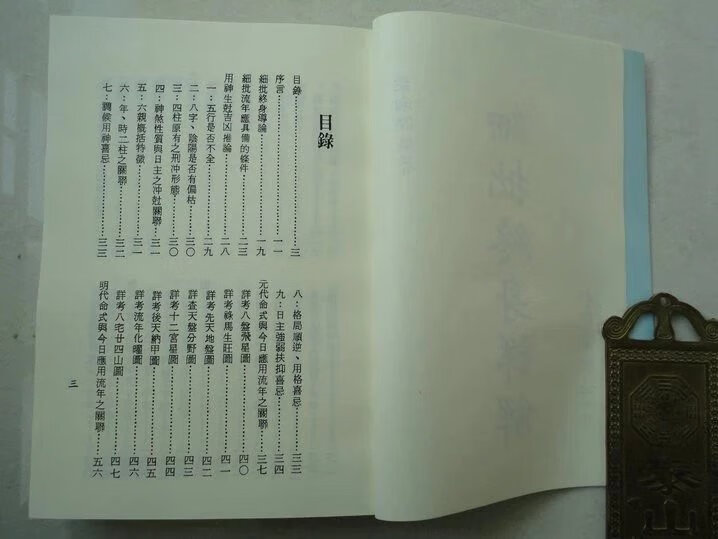 目錄
目錄……………………三
序言……………………一一
細批終身導論……………………一九
細批流年應具備的條件……………………二三
用神生尅吉凶推論……………………二八
一：五行是否不全……………………二九
二：八字、陰陽是否有偏枯……………………三〇
三：四柱原有之刑冲形態……………………三〇
四：神煞性質與日主之冲尅關聯……………………三一
五：六親概括特徵……………………三一
六：年、時二柱之關聯……………………三二
七：調候用神喜忌……………………三三
八：格局順逆、用格喜忌……………………三三
九：日主強弱扶抑喜忌……………………三四
元代命式與今日應用流年之關聯……………………三七
詳考八盤飛星圖……………………四〇
詳考祿馬生旺圖……………………四一
詳考先天地盤圖……………………四二
詳查天盤分野圖……………………四三
詳考十二宮星圖……………………四四
詳考後天納甲圖……………………四五
詳考流年化曜圖……………………四六
詳考八宅廿四山圖……………………四七
明代命式與今日應用流年之關聯……………………五六
三
泰山